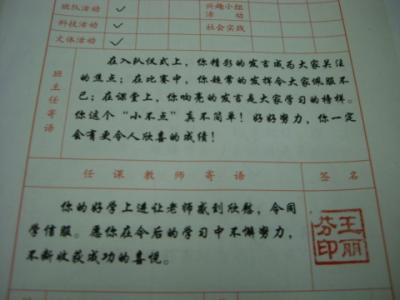 班队活动 ✓ 兴趣小组
活动
科技活动 ✓ 社会实践
文体活动 ✓
班主任寄语
在入队仪式上，你精彩的发言成为大家关注
的焦点；在比赛中，你超常的发挥令大家佩服不
已；在课堂上，你响亮的发言是大家学习的榜样。
你这个“小不点”真不简单！好好努力，你一定
会有更令人欣喜的成绩！
任课教师寄语 签名
你的好学上进让老师感到欣慰，令同
学信服。愿你在今后的学习中不懈努力，
不断收获成功的喜悦。
王丽
芬印